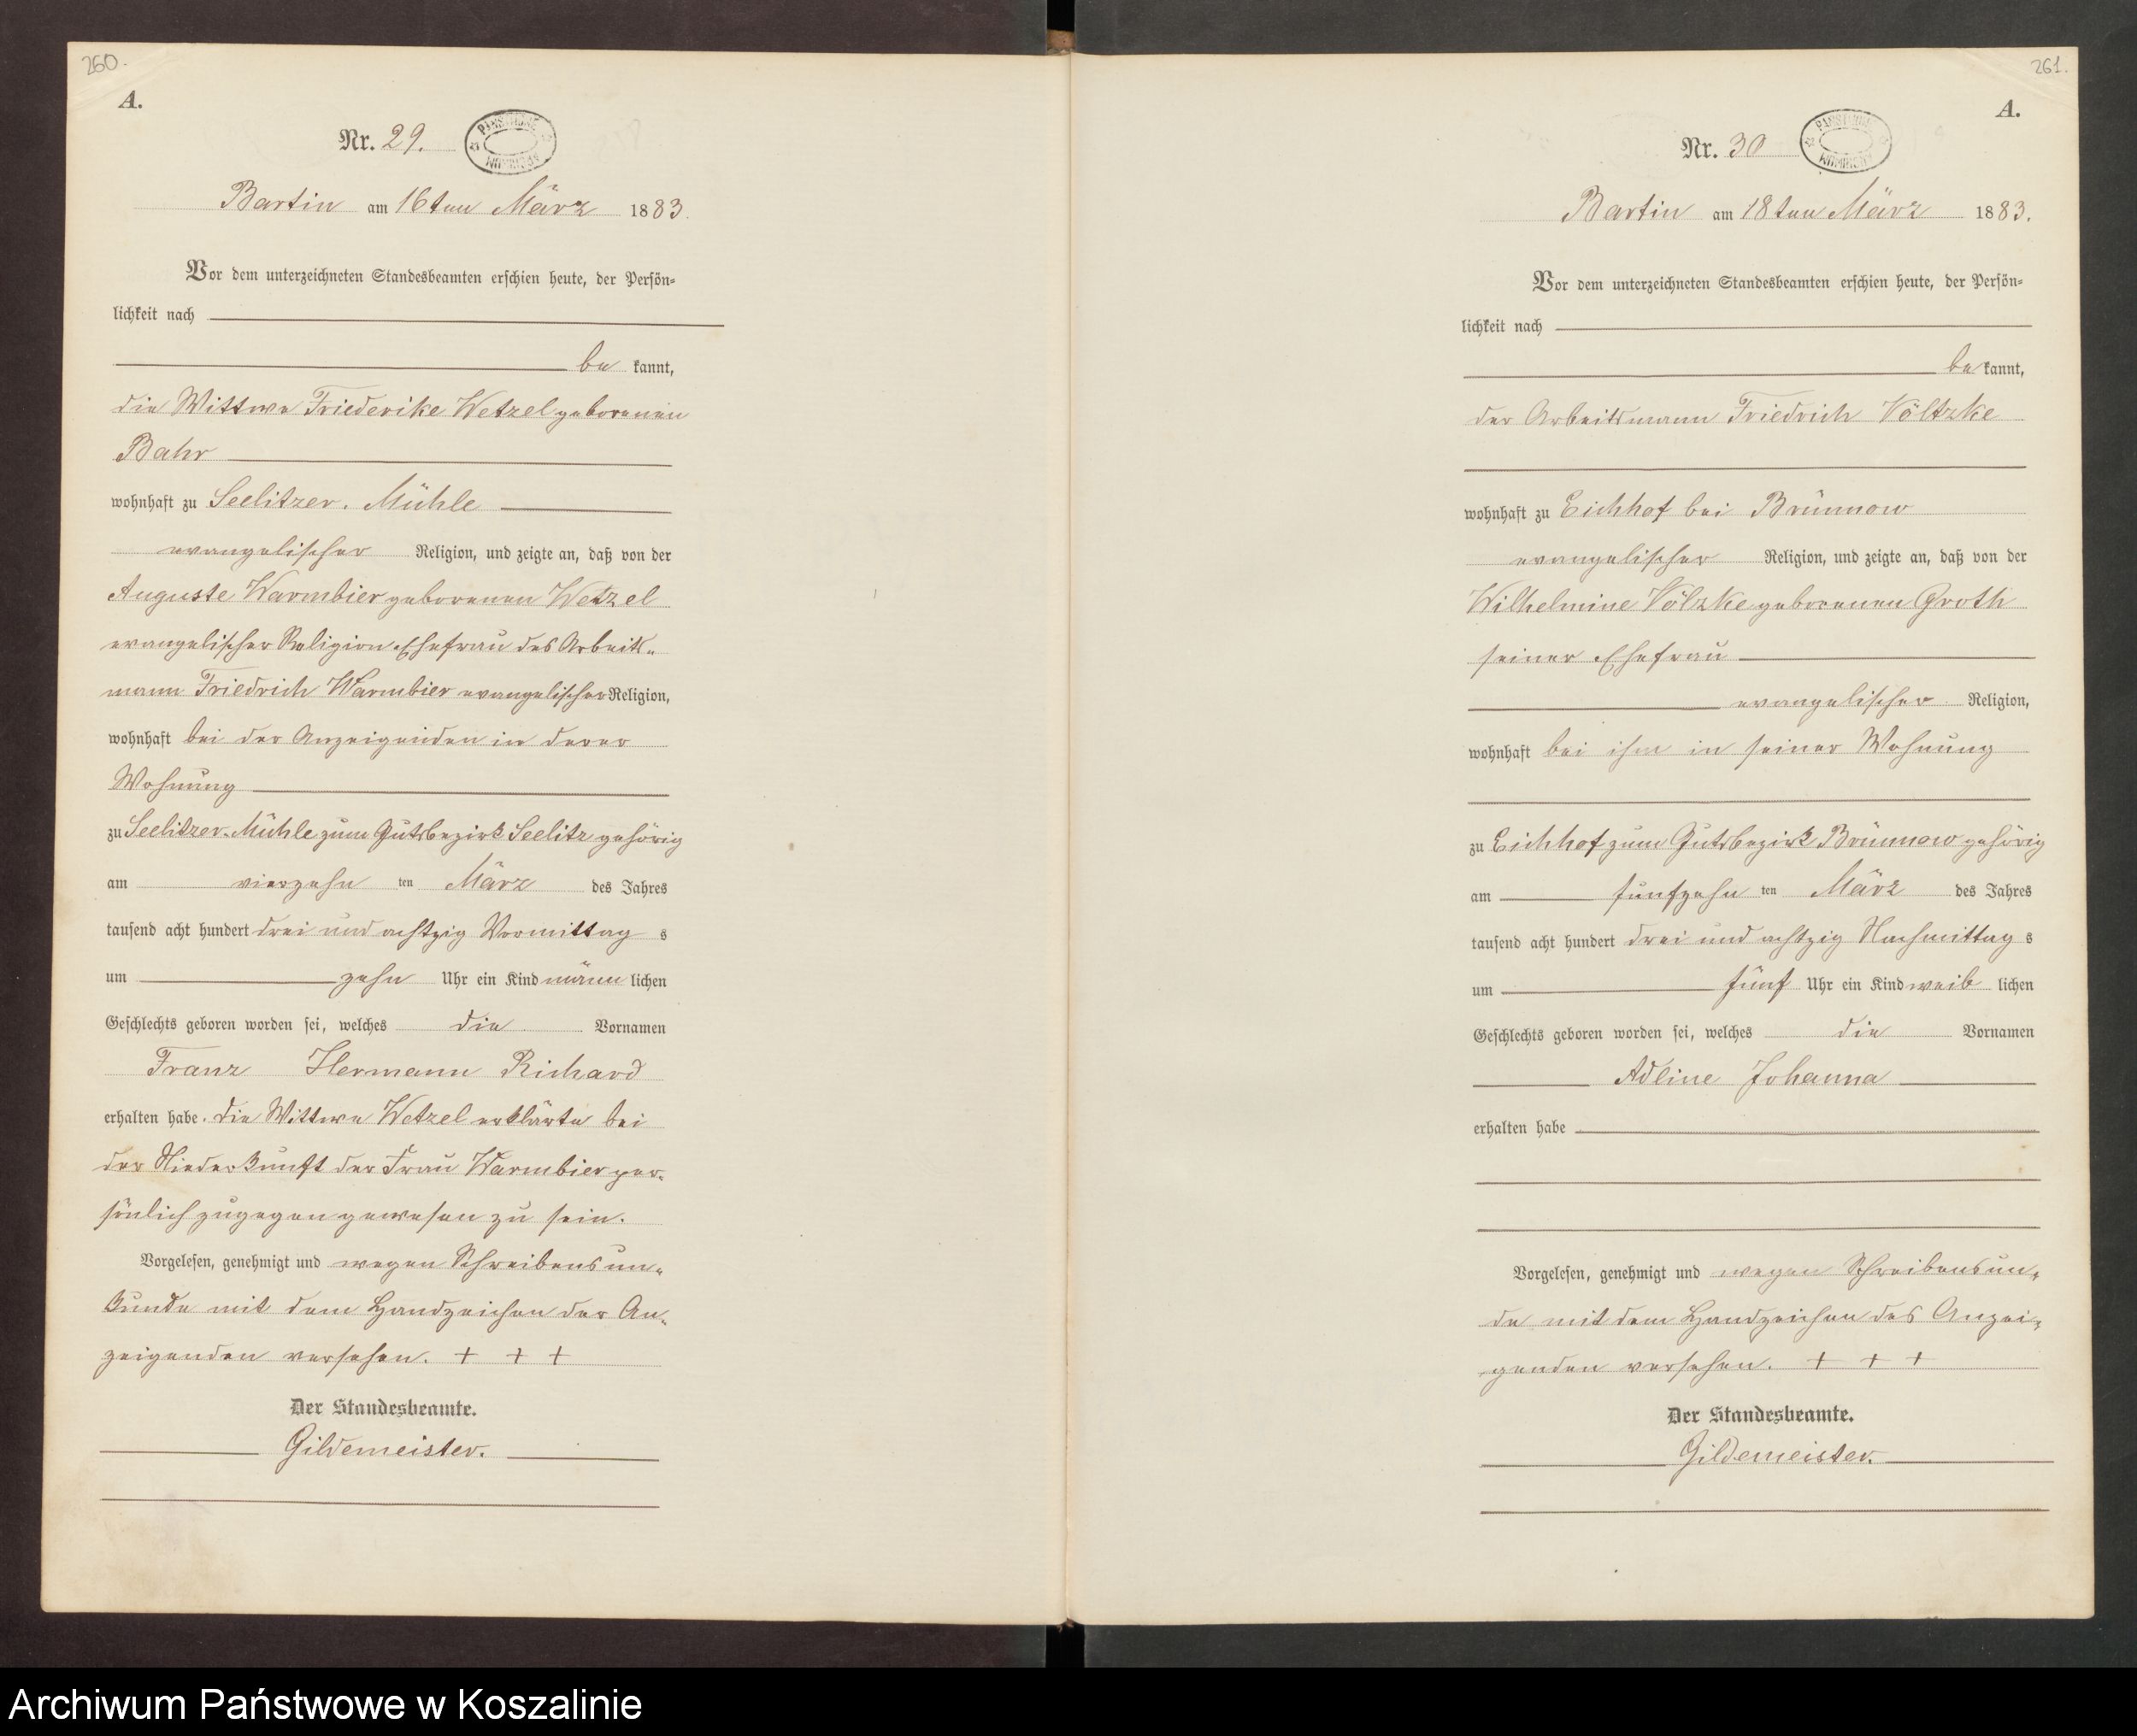 260.
A.
Nr. 29.
PAŃSTWOWE
ARCHIWUM
Bartin am 16ten März 1883.
Vor dem unterzeichneten Standesbeamten erschien heute, der Persön=
lichkeit nach
be kannt,
die Wittwe Friederike Wetzel geborenen
Bahr
wohnhaft zu Seelitzer. Mühle
evangelischer Religion, und zeigte an, daß von der
Auguste Warmbier geborenen Wetzel
evangelischer Religion Ehefrau des Arbeits-
mann Friedrich Warmbier evangelischer Religion,
wohnhaft bei der Anzeigenden in derer
Wohnung
zu Seelitzer-Mühle zum Gutsbezirk Seelitz gehörig
am vierzehn ten März des Jahres
tausend acht hundert drei und achtzig Vormittag s
um zehn Uhr ein Kind männ lichen
Geschlechts geboren worden sei, welches die Vornamen
Franz Hermann Richard
erhalten habe. Die Wittwe Wetzel erklärte bei
der Niederkunft der Frau Warmbier per-
sönlich zugegen gewesen zu sein.
Vorgelesen, genehmigt und wegen Schreibensun-
kunde mit dem Handzeichen der An-
zeigenden versehen. + + +
Der Standesbeamte.
Gildemeister.
261.
A.
Nr. 30
PAŃSTWOWE
ARCHIWUM
Bartin am 18ten März 1883.
Vor dem unterzeichneten Standesbeamten erschien heute, der Persön=
lichkeit nach
be kannt,
der Arbeitsmann Friedrich Völtzke
wohnhaft zu Eichhof bei Brünnow
evangelischer Religion, und zeigte an, daß von der
Wilhelmine Völzke geborenen Groth
seiner Ehefrau
evangelischer Religion,
wohnhaft bei ihm in seiner Wohnung
zu Eichhof zum Gutsbezirk Brünnow gehörig
am fünfzehn ten März des Jahres
tausend acht hundert drei und achtzig Nachmittag s
um fünf Uhr ein Kind weib lichen
Geschlechts geboren worden sei, welches die Vornamen
Adline Johanna
erhalten habe
Vorgelesen, genehmigt und wegen Schreibensun-
de mit dem Handzeichen des Anzei-
genden versehen. + + +
Der Standesbeamte.
Gildemeister.
Archiwum Państwowe w Koszalinie